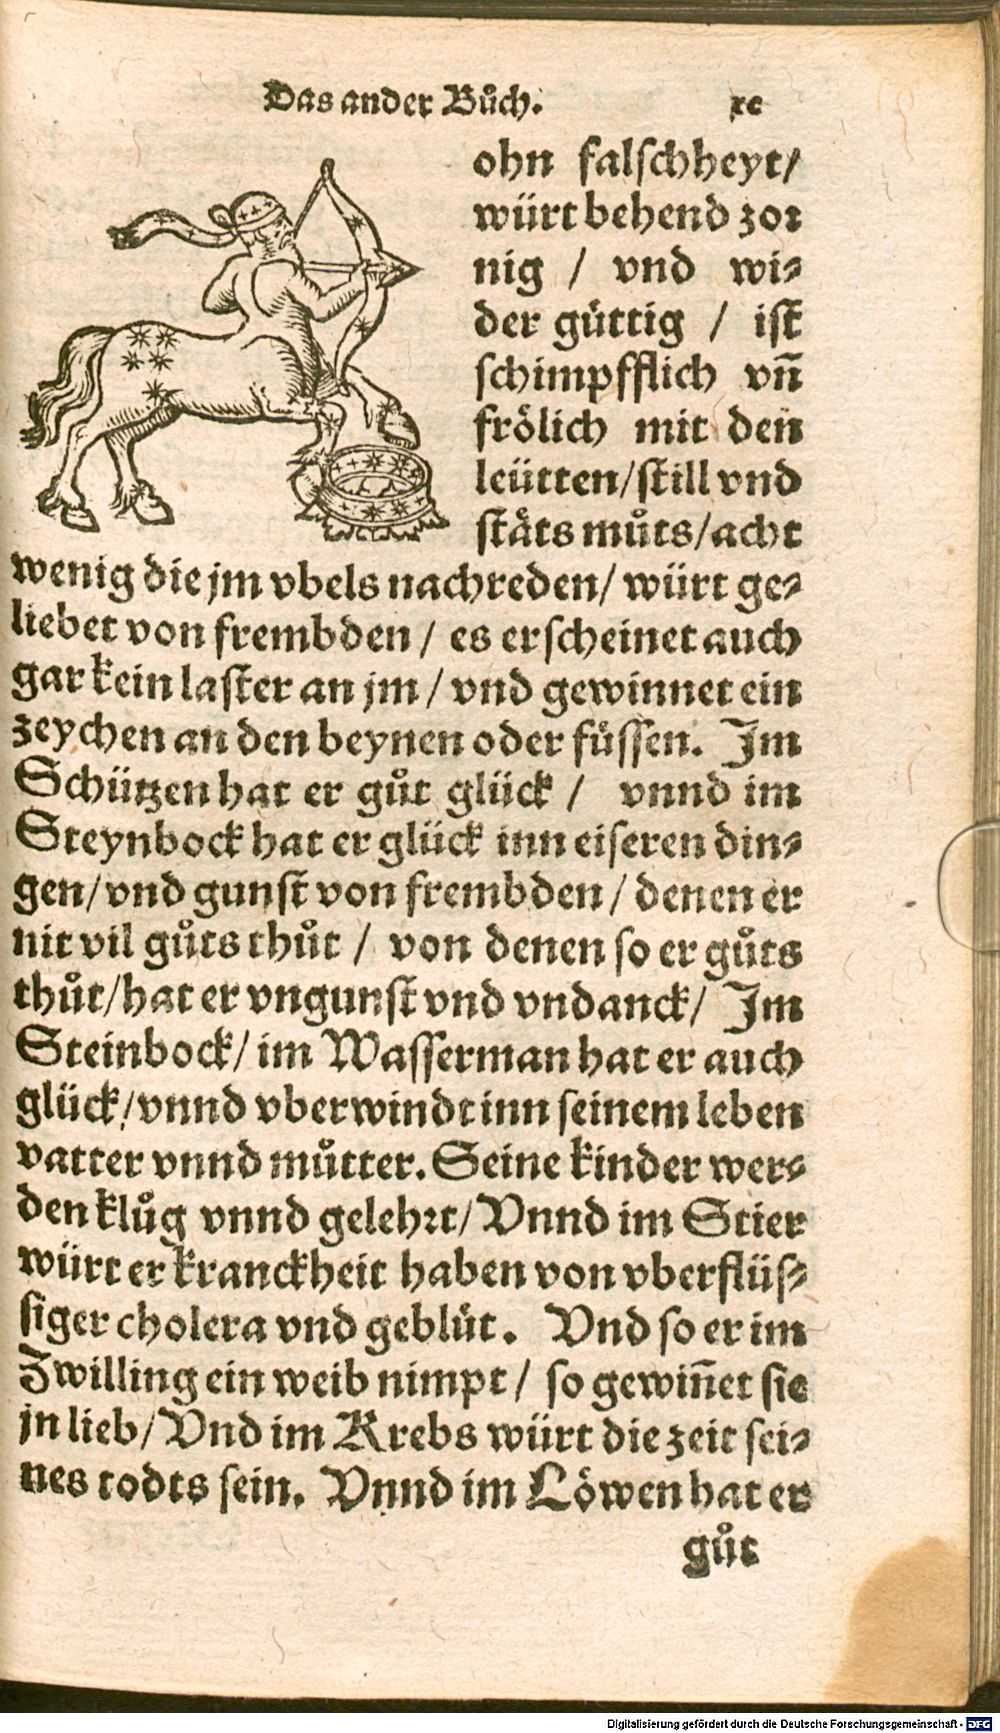 Das ander Bůch. xc
ohn falschheyt/
würt behend zor
nig / vnd wi⸗
der gůttig / ist
schimpfflich vñ
frölich mit den
leütten/still vnd
stäts můts/acht
wenig die jm vbels nachreden/ würt ge⸗
liebet von frembden / es erscheinet auch
gar kein laster an jm / vnd gewinnet ein
zeychen an den beynen oder füssen. Im
Schützen hat er gůt glück / vnnd im
Steynbock hat er glück inn eiseren din⸗
gen/vnd gunst von frembden / denen er
nit vil gůts thůt / von denen so er gůts
thůt/hat er vngunst vnd vndanck/ Im
Steinbock/ im Wasserman hat er auch
glück/vnnd vberwindt inn seinem leben
vatter vnnd můtter. Seine kinder wer⸗
den klůg vnnd gelehrt/ Vnnd im Stier
würt er kranckheit haben von vberflüs⸗
siger cholera vnd geblüt. Vnd so er im
Zwilling ein weib nimpt / so gewiñet sie
jn lieb/Vnd im Krebs würt die zeit sei⸗
nes todts sein. Vnnd im Löwen hat er
gůt
Digitalisierung gefördert durch die Deutsche Forschungsgemeinschaft - DFG